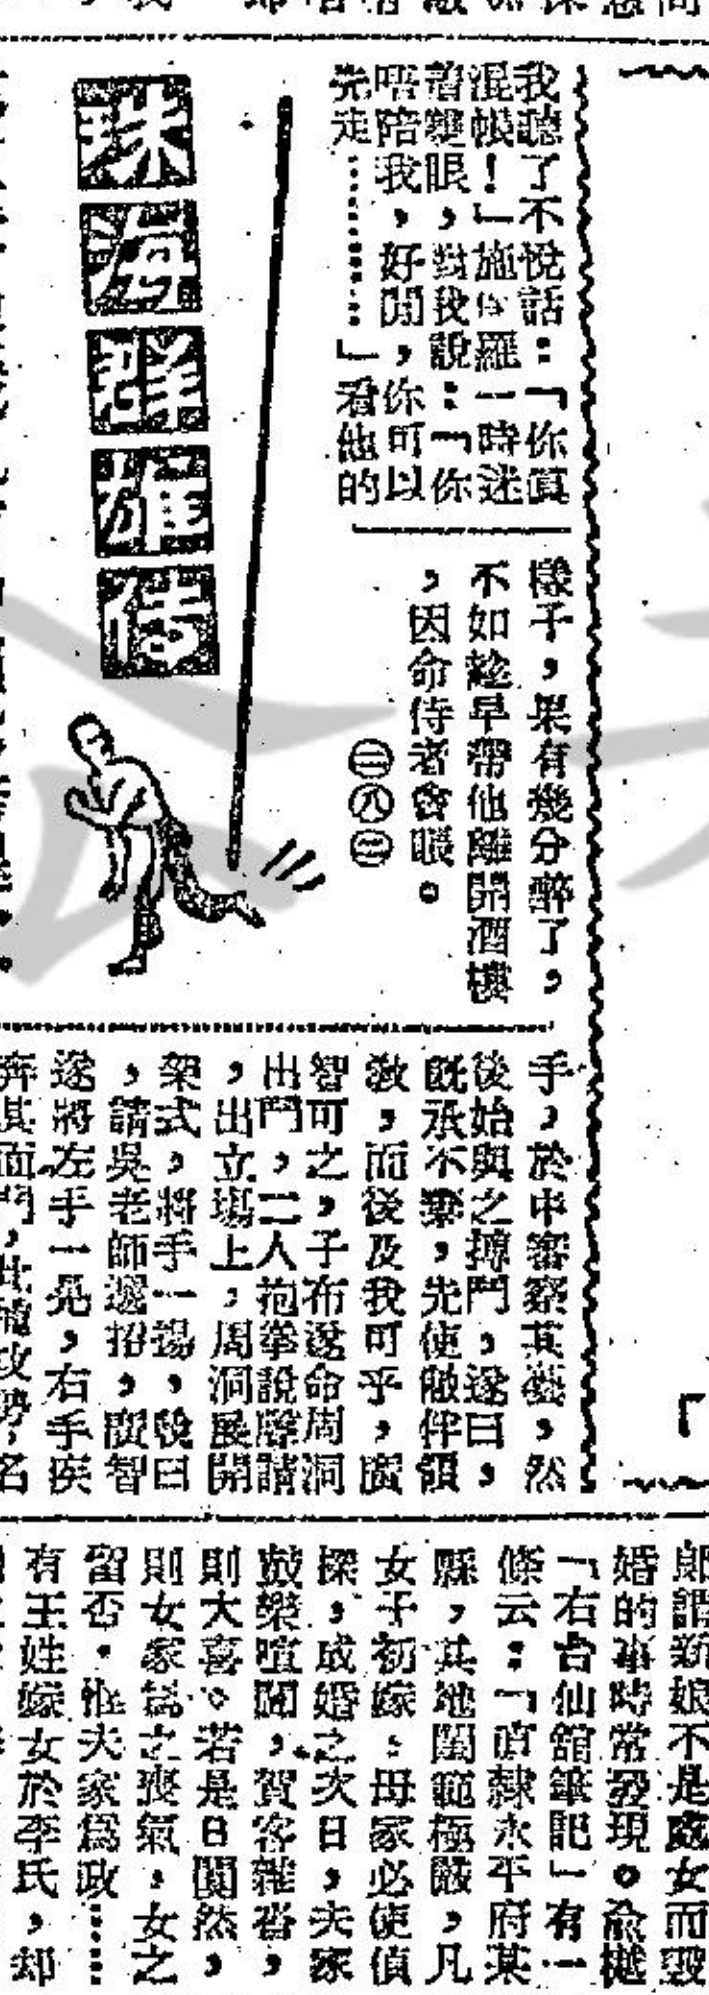 我聽了不悅話：「你真
混帳！」施伯羅一時迷
着雙眼，對我說：「你
唔陪我，好閒，你可以
先走………」看他的
樣子，果有幾分醉了，
不如趁早帶他離開酒樓
，因命侍者會賬。
㊁㊇㊂
珠海群雄傳
手，於中審察其藝，然
後始與之搏鬥，遂曰，
既承不棄，先使敝伴領
敎，而後及我可乎，廣
智可之，子布遂命周洞
出鬥，二人抱拳說聲請
，出立場上，周洞展開
架式，將手一揚，說曰
，請吳老師遞招，廣智
遂將左手一晃，右手疾
奔其面門，此種攻勢，名
郞謂新娘不是處女而毀
婚的事時常發現。俞樾
「右台仙館筆記」有一
條云：「直隸永平府某
縣，其地閨範極嚴，凡
女子初嫁，母家必使偵
探，成婚之次日，夫家
鼓樂喧闐，賀客雜沓，
則大喜。若是日闃然，
則女家爲之喪氣，女之
留否，惟夫家爲政……
有王姓嫁女於李氏，却